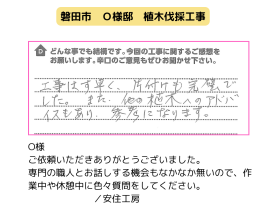 磐田市　O様邸　植木伐採工事
どんな事でも結構です。今回の工事に関するご感想を
お願いします。辛口のご意見もぜひお聞かせ下さい。
工事はす早く、片付けも完璧で
した。また、他の植木へのアドバ
イスもあり、参考になります。
O様
ご依頼いただきありがとうございました。
専門の職人とお話しする機会もなかなか無いので、作
業中や休憩中に色々質問をしてください。
／安住工房